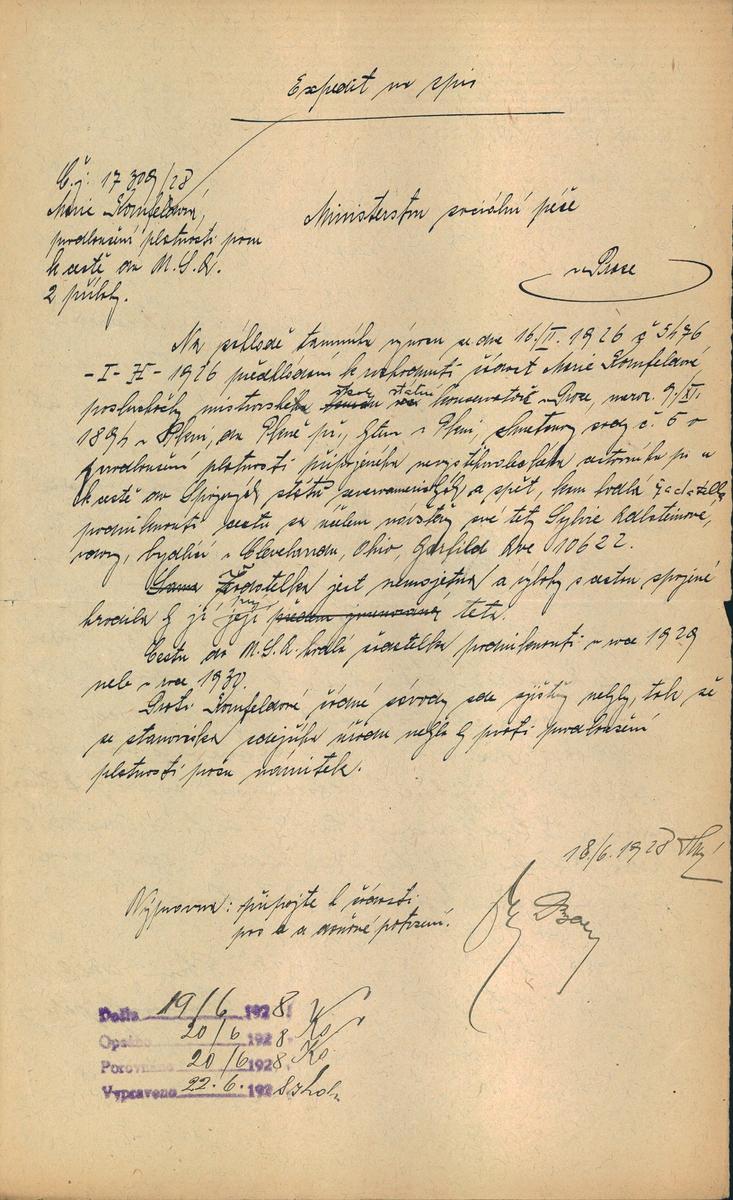 Expedit na spis
Č.j. 17 309/28
Marie Kornfeldová,
prodloužení platnosti pasu
k cestě do U.S.A.
2 přílohy.
Ministerstvu sociální péče
v Praze
Na základě tamního výnosu ze dne 16./II. 1926 č 5476
-I-H- 1926 předkládám k rozhodnutí žádost Marie Kornfeldové,
posluchačky mistrovské školy státní konservatoře v Praze, naroz. 9/XI.
189 v Plzni, do Plzně př., bytem v Plzni, Smetanovy sady č. 6 o
prodloužení platnosti připojeného cestovního pasu
k cestě do Spojených států severoamerických a zpět, kam hodlá žadatelka
podniknouti cestu za účelem návštěvy své tety Sylvie Adlsteinové,
vdovy, bydlící v Clevelandu, Ohio, Garfild Ave 10622.
Sama Žadatelka jest nemajetná a výlohy s cestou spojené
hradila by jí prý její předem jmenovaná teta.
Cestu do U.S.A. hodlá žadatelka podniknouti v roce 1929
nebo v roce 1930.
Proti Kornfeldové žádné závady zde zjištěny nebyly, tak že
se stanoviska zdejšího úřadu nebylo by proti prodloužení
platnosti pasu námitek.
18/6. 1928
Výpravna: připojte k žádosti
pas a a potvrzení.
Došlo 19/6 1928
Opsáno 20/6 1928 Ko
Porovnáno 20/6 1928 Ko
Vypraveno 22.6. 1928